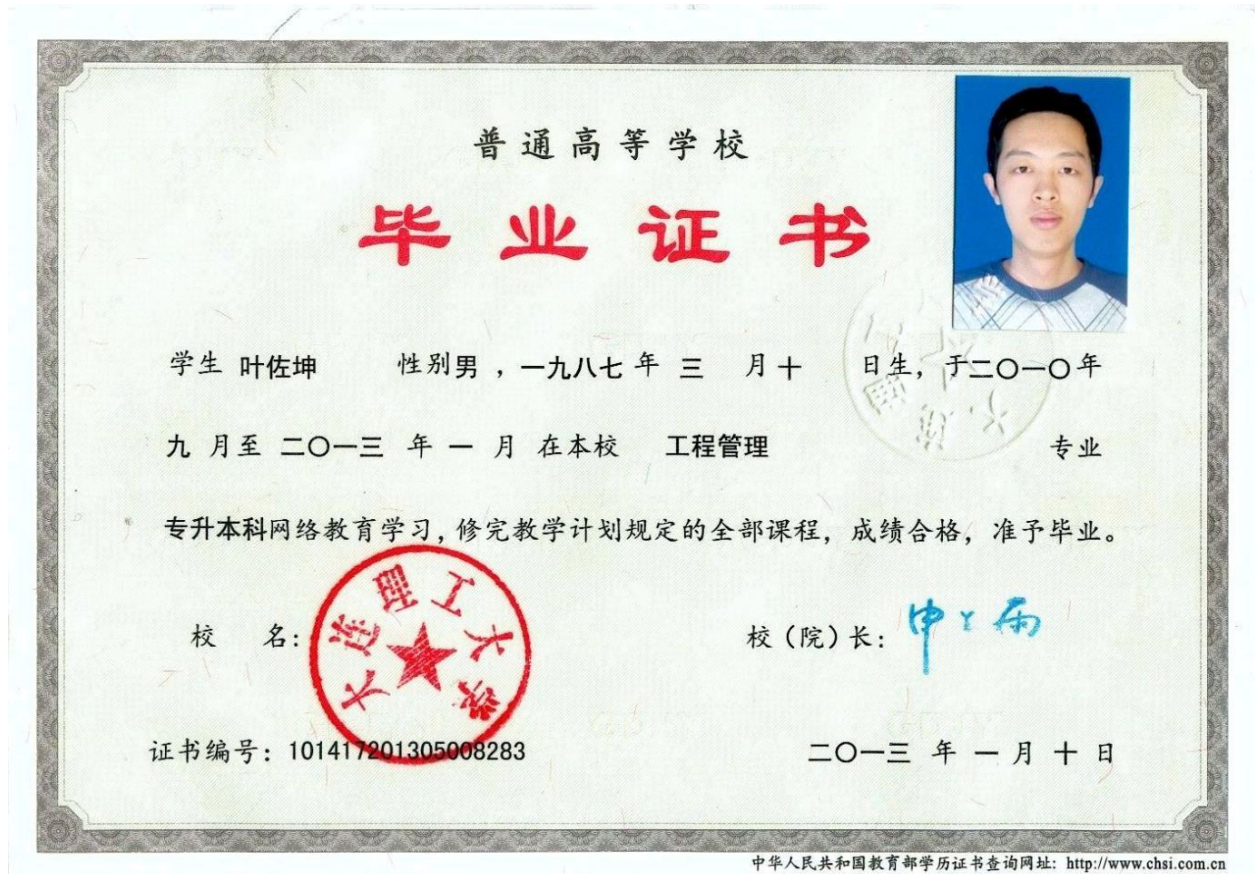 普通高等学校
毕业证书
学生 叶佐坤 性别男，一九八七年 三 月十 日生，于二〇一〇年
九 月至 二〇一三 年 一 月 在本校 工程管理 专业
专升本科网络教育学习，修完教学计划规定的全部课程，成绩合格，准予毕业。
校 名：
大连理工大学
校（院）长：
证书编号：101417201305008283
二〇一三 年 一 月 十 日
中华人民共和国教育部学历证书查询网址：http://www.chsi.com.cn